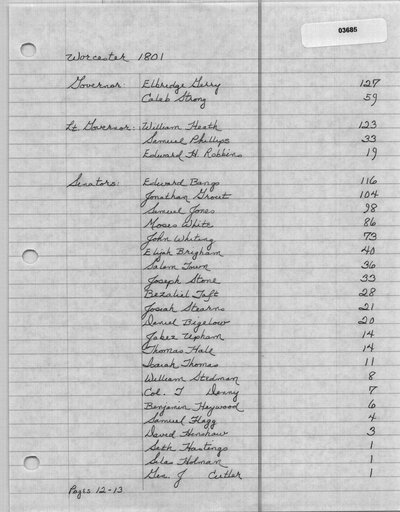 03685
Worcester 1801
Governor: Elbridge Gerry 127
Caleb Strong 59
Lt. Governor: William Heath 123
Samuel Phillips 33
Edward H. Robbins 19
Senators: Edward Bangs 116
Jonathan Grout 104
Samuel Jones 98
Moses White 86
John Whiting 73
Elijah Brigham 40
Salem Town 36
Joseph Stone 33
Bezaliel Taft 28
Josiah Stearns 21
Daniel Bigelow 20
Jabez Upham 14
Thomas Hale 14
Isaiah Thomas 11
William Stedman 8
Col. T Denny 7
Benjamin Heywood 6
Samuel Flagg 4
David Henshaw 3
Seth Hastings 1
Silas Holman 1
Geo. J Cutler 1
Pages 12-13